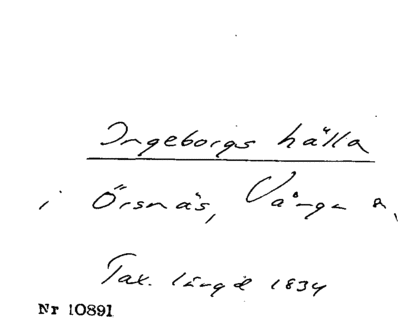 Ingeborgs hälla
i Örsnäs, Vånga s.
Tax. längd 1834
Nr 10891